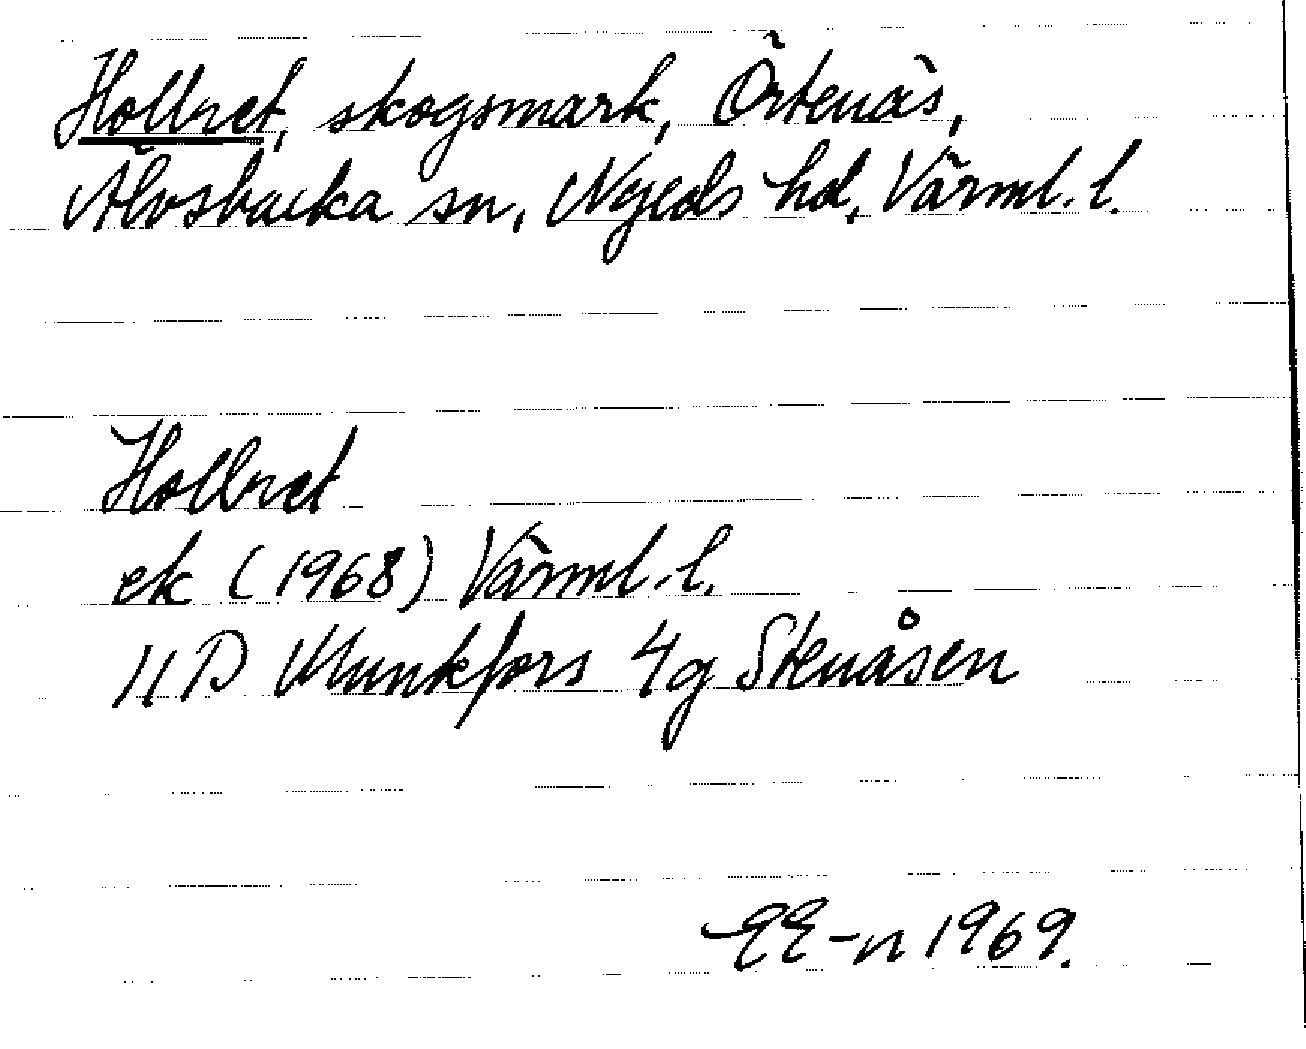 Hollret, skogsmark, Örtenäs,
Älvsbacka sn, Nyeds hd, Värml. l.
Hollret
ek (1968) Värml. l.
11 D Munkfors 4g Stenåsen
EE-n 1969.